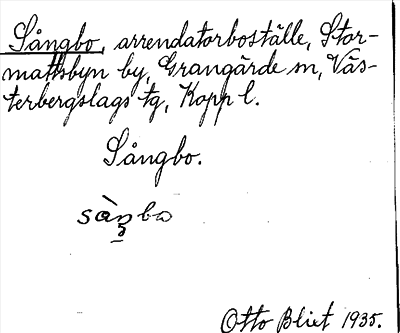 Sångbo, arrendatorboställe, Stor-
mattsbyn by, Grangärde sn, Väs-
terbergslags tg, Kopp l.
Sångbo.
Otto Bliet 1935.